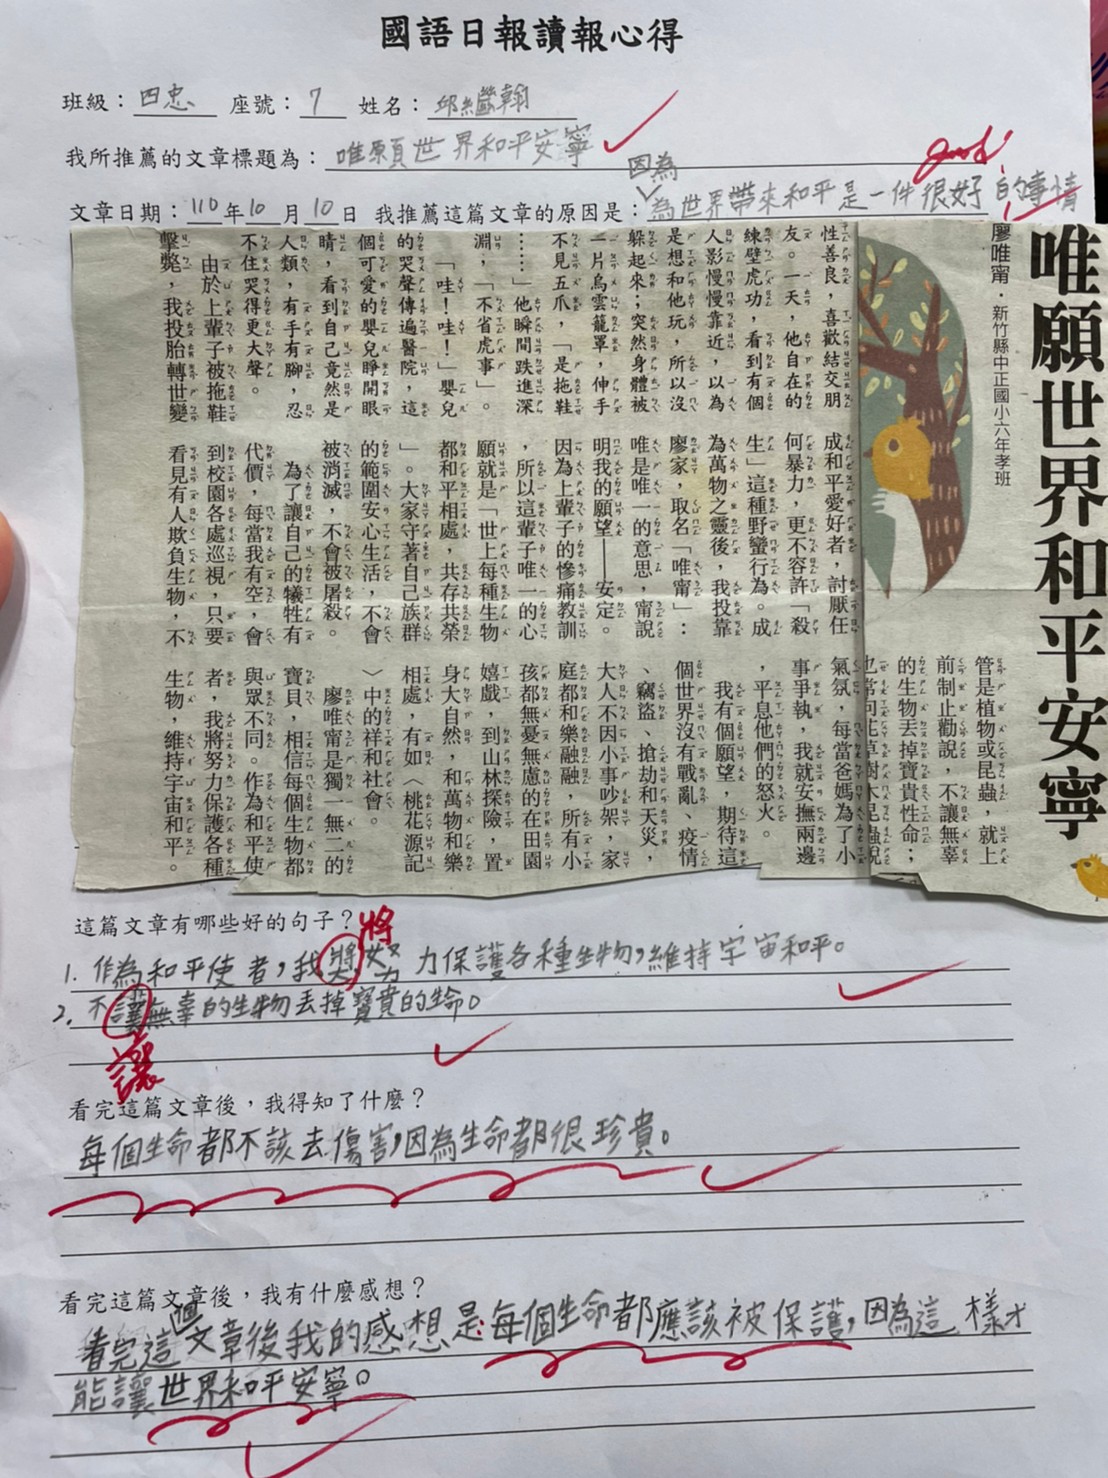 國語日報讀報心得
班級：四忠 座號：7 姓名：邱繼翰
我所推薦的文章標題為：唯願世界和平安寧
good!
因為
文章日期：110年10月10日 我推薦這篇文章的原因是：為世界帶來和平是一件很好的事情
唯願世界和平安寧
廖唯甯．新竹縣中正國小六年孝班
性善良，喜歡結交朋
友。一天，他自在的
練壁虎功，看到有個
人影慢慢靠近，以為
是想和他玩，所以沒
躲起來；突然身體被
一片烏雲籠罩，伸手
不見五爪，「是拖鞋
……」他瞬間跌進深
淵，「不省虎事」。
「哇！哇！」嬰兒
的哭聲傳遍醫院，這
個可愛的嬰兒睜開眼
睛，看到自己竟然是
人類，有手有腳，忍
不住哭得更大聲。
由於上輩子被拖鞋
擊斃，我投胎轉世變
成和平愛好者，討厭任
何暴力，更不容許「殺
生」這種野蠻行為。成
為萬物之靈後，我投靠
廖家，取名「唯甯」：
唯是唯一的意思，甯說
明我的願望——安定。
因為上輩子的慘痛教訓
，所以這輩子唯一的心
願就是「世上每種生物
都和平相處，共存共榮
」。大家守著自己族群
的範圍安心生活，不會
被消滅，不會被屠殺。
為了讓自己的犧牲有
代價，每當我有空，會
到校園各處巡視，只要
看見有人欺負生物，不
管是植物或昆蟲，就上
前制止勸說，不讓無辜
的生物丟掉寶貴性命；
也常向花草樹木昆蟲說
氣氛，每當爸媽為了小
事爭執，我就安撫兩邊
，平息他們的怒火。
我有個願望，期待這
個世界沒有戰亂、疫情
、竊盜、搶劫和天災，
大人不因小事吵架，家
庭都和樂融融，所有小
孩都無憂無慮的在田園
嬉戲，到山林探險，置
身大自然，和萬物和樂
相處，有如〈桃花源記
〉中的祥和社會。
廖唯甯是獨一無二的
寶貝，相信每個生物都
與眾不同。作為和平使
者，我將努力保護各種
生物，維持宇宙和平。
這篇文章有哪些好的句子？
將
1. 作為和平使者，我將努力保護各種生物，維持宇宙和平。
2. 不讓無辜的生物丟掉寶貴的生命。
讓
看完這篇文章後，我得知了什麼？
每個生命都不該去傷害，因為生命都很珍貴。
看完這篇文章後，我有什麼感想？
看完這個文章後我的感想是：每個生命都應該被保護，因為這樣才
能讓世界和平安寧。